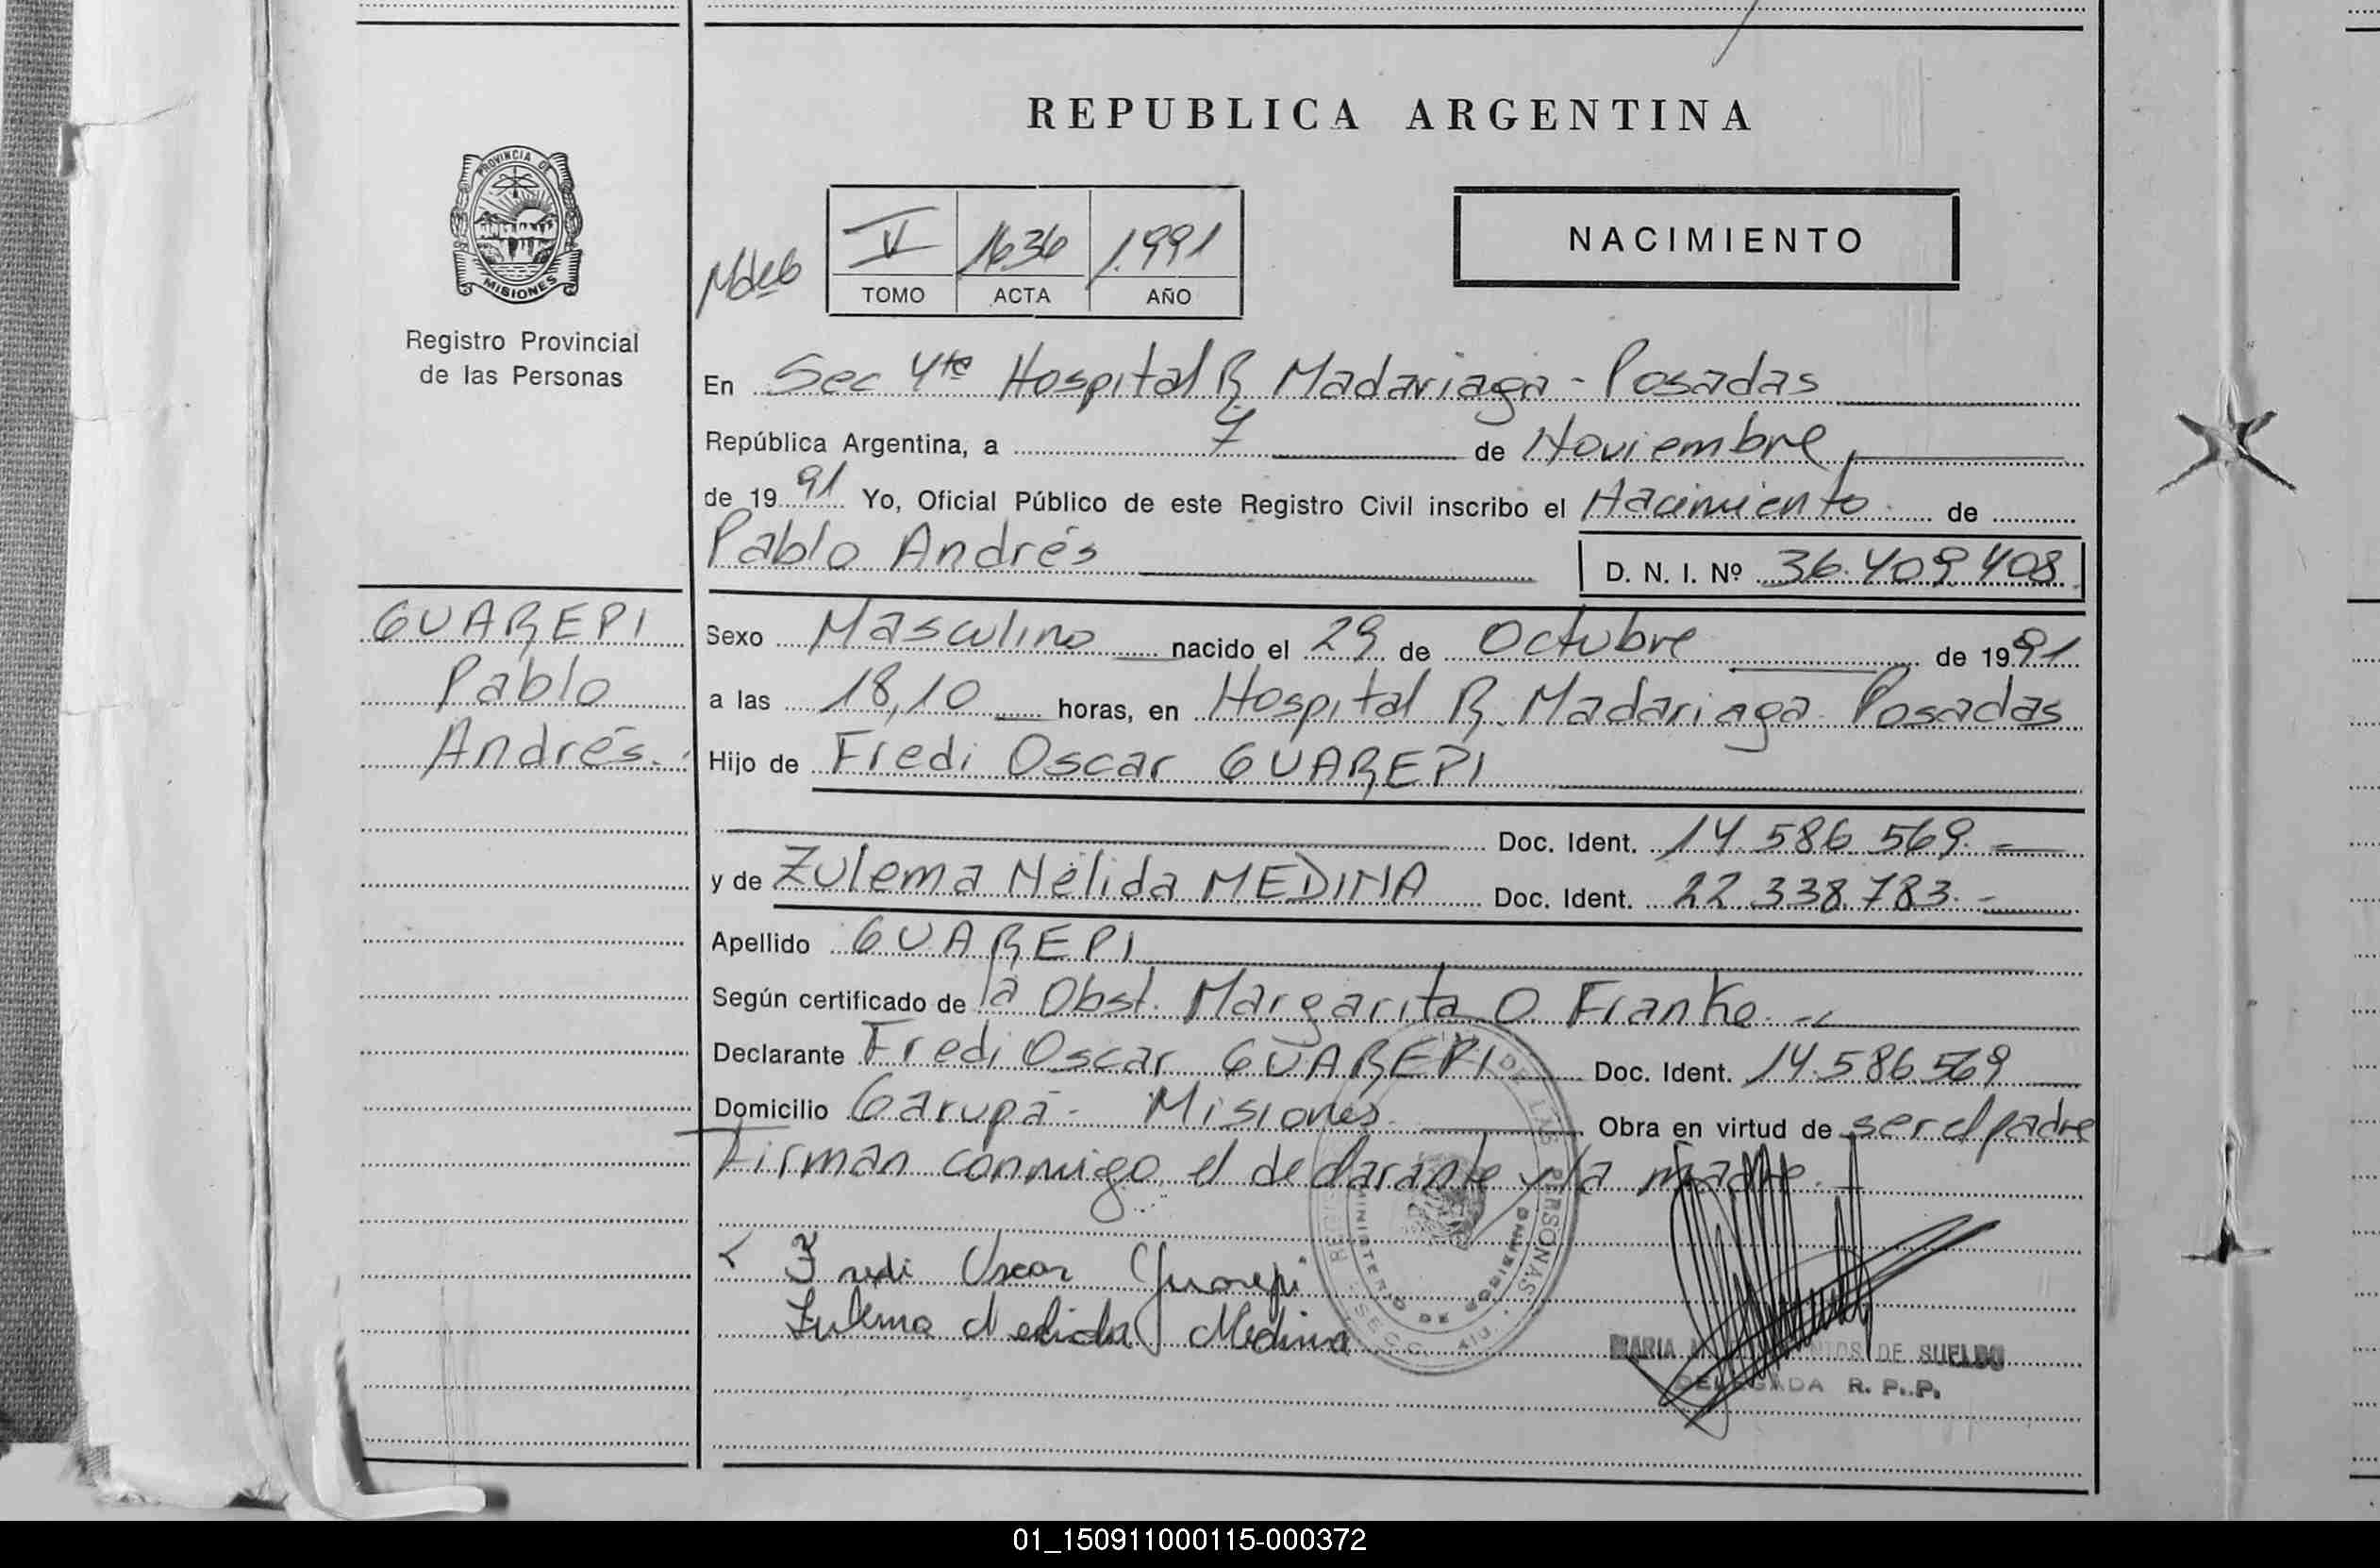 REPUBLICA ARGENTINA
PROVINCIA DE
MISIONES
Registro Provincial
de las Personas
V 1636 1.991
TOMO ACTA AÑO
NACIMIENTO
En Sec 4ta Hospital R. Madariaga - Posadas
República Argentina, a 7 de Noviembre
de 1991 Yo, Oficial Público de este Registro Civil inscribo el Nacimiento de
Pablo Andrés
D. N. I. Nº 36.409.408
GUAREPI
Pablo
Andrés.
Sexo Masculino nacido el 29 de Octubre de 1991
a las 18,10 horas, en Hospital R. Madariaga Posadas
Hijo de Fredi Oscar GUAREPI
Doc. Ident. 14.586.569.
y de Zulema Nélida MEDINA Doc. Ident. 22.338.783.
Apellido GUAREPI
Según certificado de la Obst. Margarita O. Franke.
Declarante Fredi Oscar GUAREPI Doc. Ident. 14.586.569
Domicilio Garupá - Misiones. Obra en virtud de ser el padre
Firman conmigo el declarante y la madre.
Fredi Oscar Guarepi
Zulema Nelida Medina
DE LAS PERSONAS
MINISTERIO DE GOBIERNO
SECC. 4ta.
MARIA DE SUELDO
DELEGADA R. P. P.
01_150911000115-000372